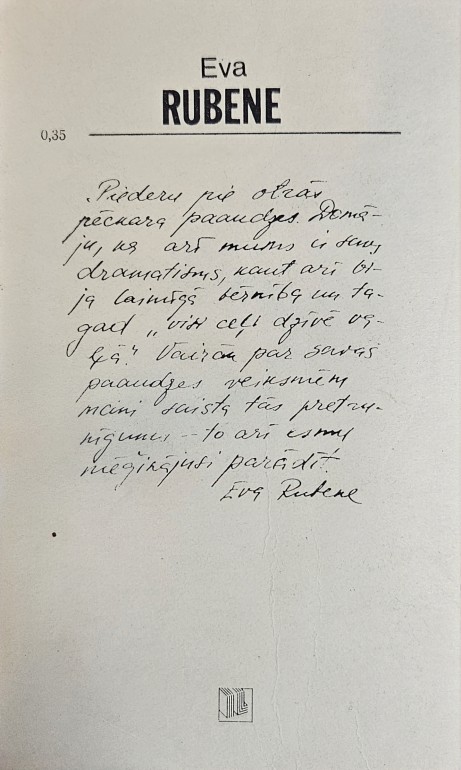 Eva
RUBENE
0,35
„Piederu pie otrās
pēckara paaudzes. Domā-
ju, ka arī mums ir savs
dramatisms, kaut arī bi-
ja laimīga bērnība un ta-
gad „visi ceļi dzīvē va-
ļā". Vairāk par savas
paaudzes veiksmēm
mani saista tās pretru-
nīgums – to arī esmu
mēģinājusi parādīt.
Eva Rubene